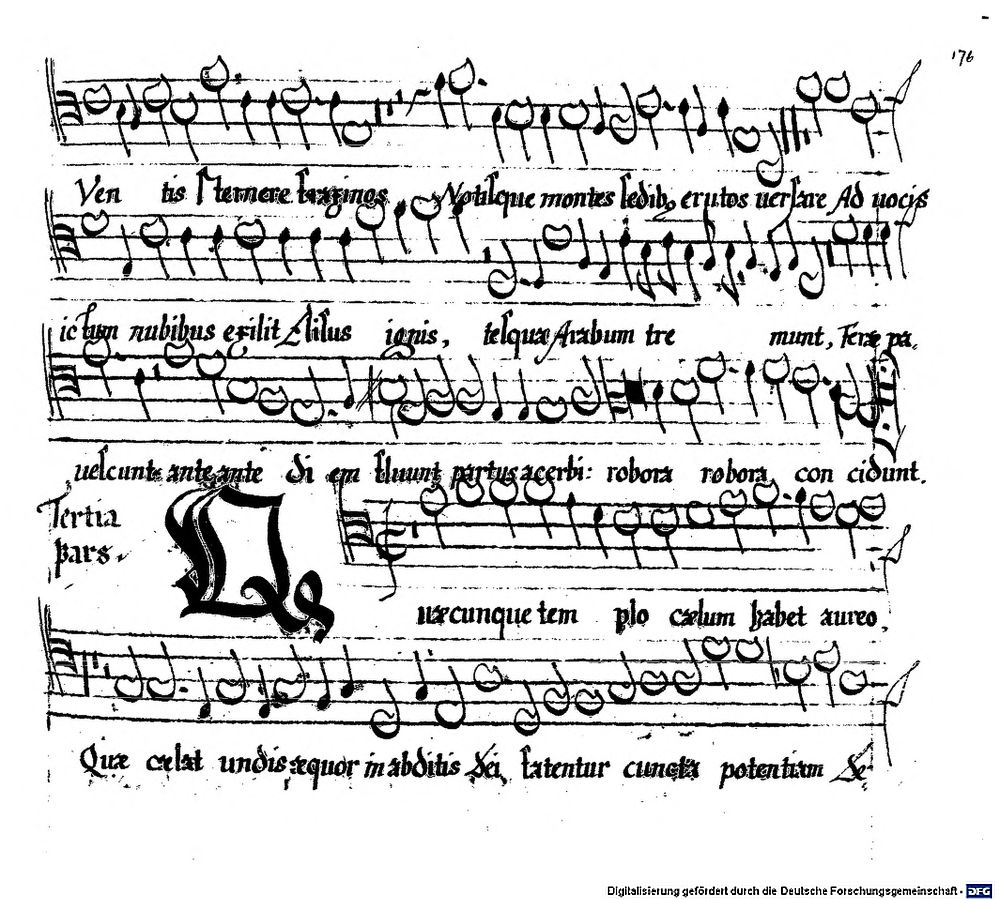 176
Ven tis sternere fraxinos Notisque montes sedib, erutos versare Ad uocis
ictum nubibus exilit Elisus ignis, tesquæ Arabum tre munt, Feræ pa,
uescunt ante ante di em fluunt partus acerbi: robora robora con cidunt.
Tertia
pars.
Quæcunque tem plo cælum habet aureo,
Quæ cælat undis æquor in abditis Dei fatentur cuncta potentiam De
Digitalisierung gefördert durch die Deutsche Forschungsgemeinschaft - DFG